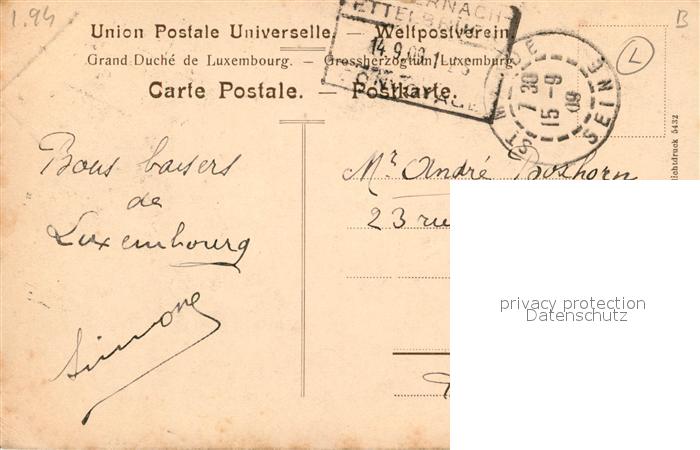 1.94
B
L
Union Postale Universelle. — Weltpostverein.
Grand Duché de Luxembourg. — Grossherzogtum Luxemburg.
Carte Postale. — Postkarte.
ETTELBRUCK
14.9.09
7 30
15 - 9
09
SEINE
Bons baisers
de
Luxembourg
Simone
Mr André
23 rue
lichtdruck 5432
privacy protection
Datenschutz